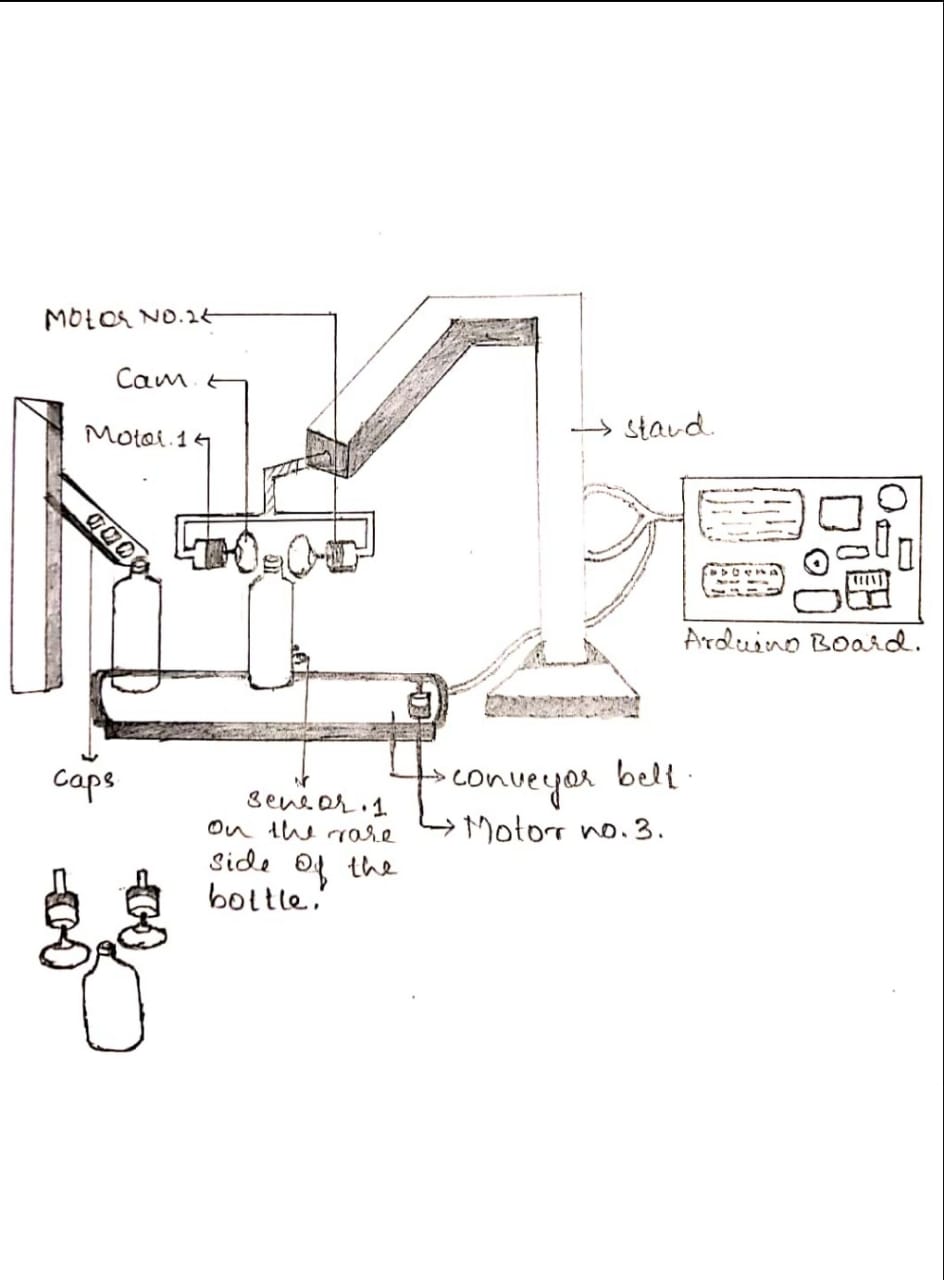 Motor No.2
Cam
Motor.1
stand
Arduino Board.
caps
sensor.1
on the rare
side of the
bottle.
conveyor belt.
Motor no.3.